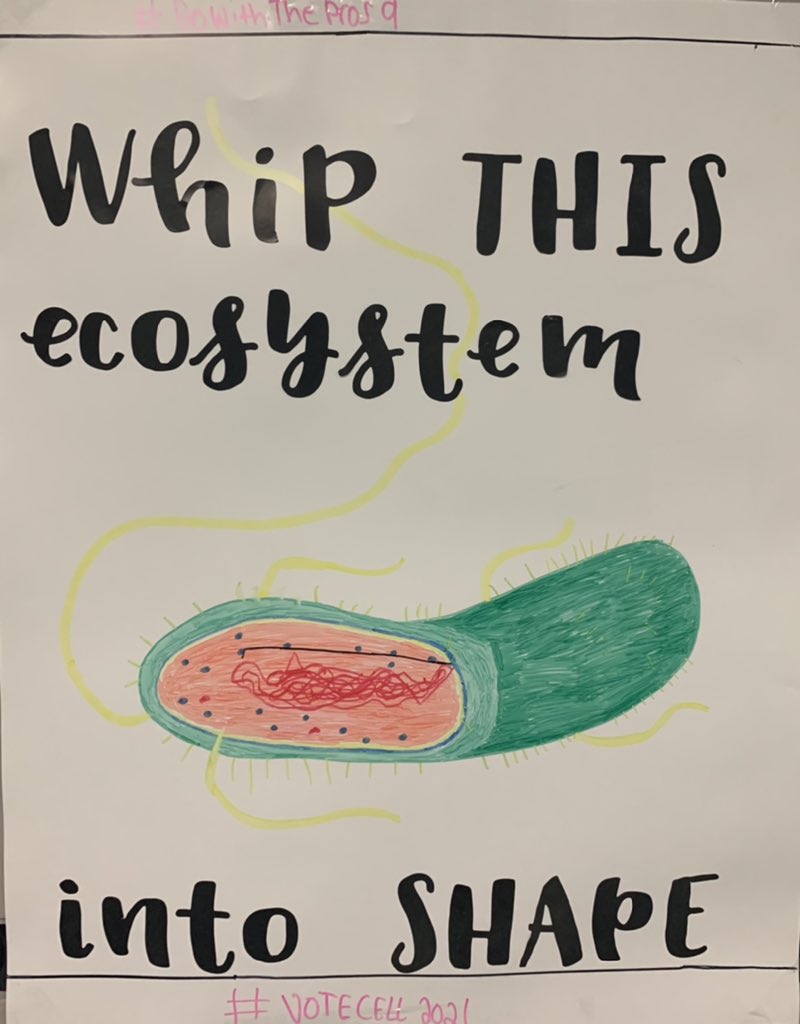 # GoWithThe Pros 9
Whip THIS
ecosystem
into SHAPE
# VOTECELL 2021